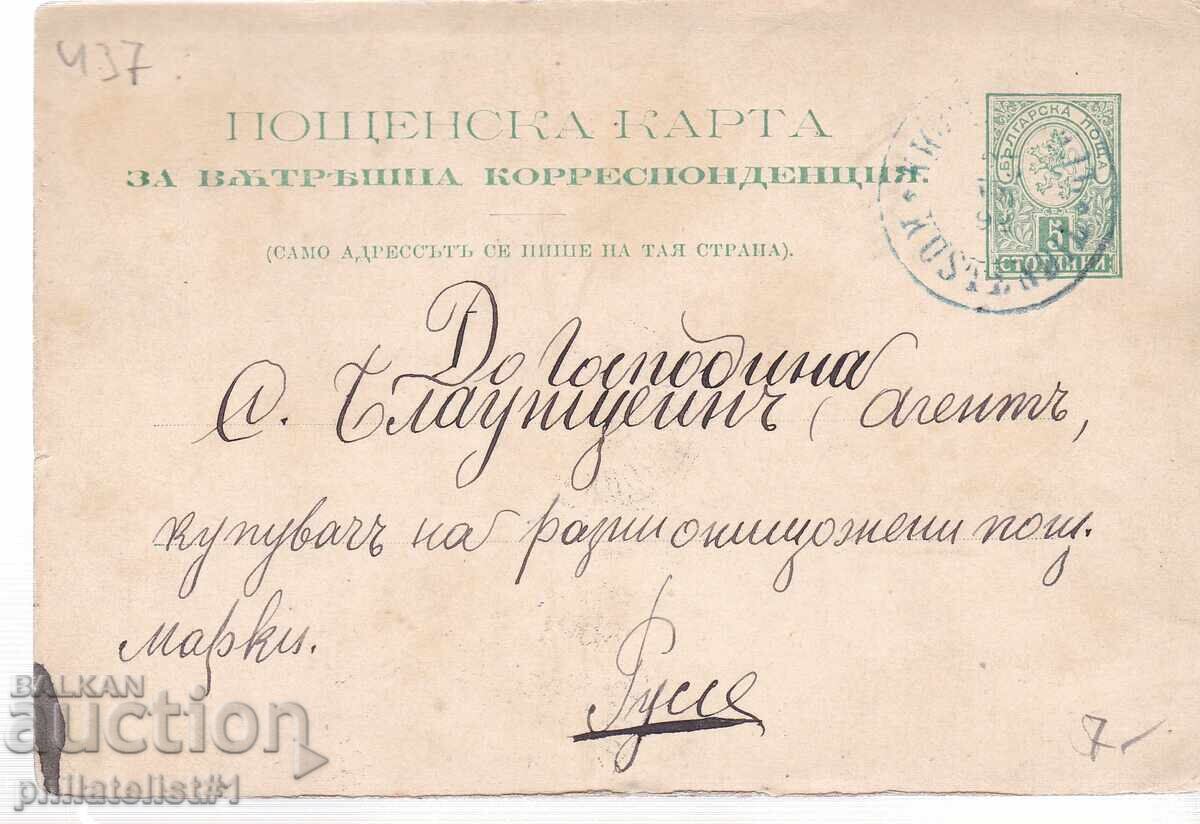 437
ПОЩЕНСКА КАРТА
ЗА ВѪТРѢШНА КОРРЕСПОНДЕНЦИЯ.
(САМО АДРЕССЪТЪ СЕ ПИШЕ НА ТАЯ СТРАНА).
БЪЛГАРСКА ПОЩА
5
СТОТИНКИ
KUSTENDIL
До Господина
Блаунщейнъ, агентъ,
купувачъ на разни онищожени пощ.
марки.
Руссе
7
BALKAN
auction
philatelist#1